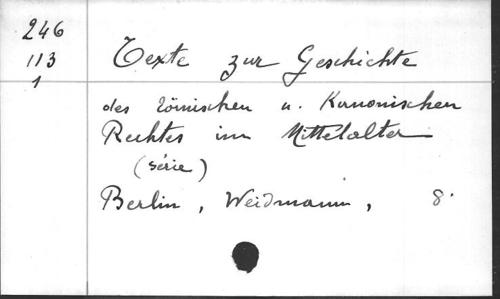 246
113
1
Texte zur Geschichte
des römischen u. Kanonischen
Rechtes im Mittelalter
(série)
Berlin, Weidmann, 8.